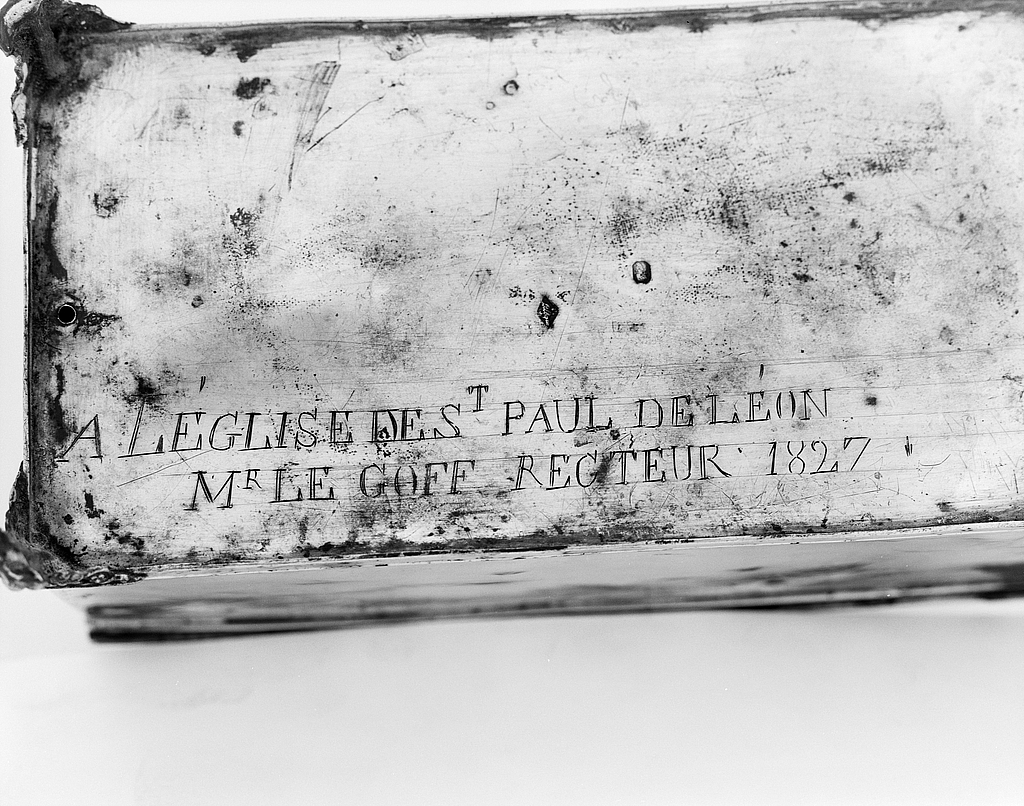 A L'ÉGLISE DE Sᵀ PAUL DE LÉON
Mᴿ LE GOFF RECTEUR 1827